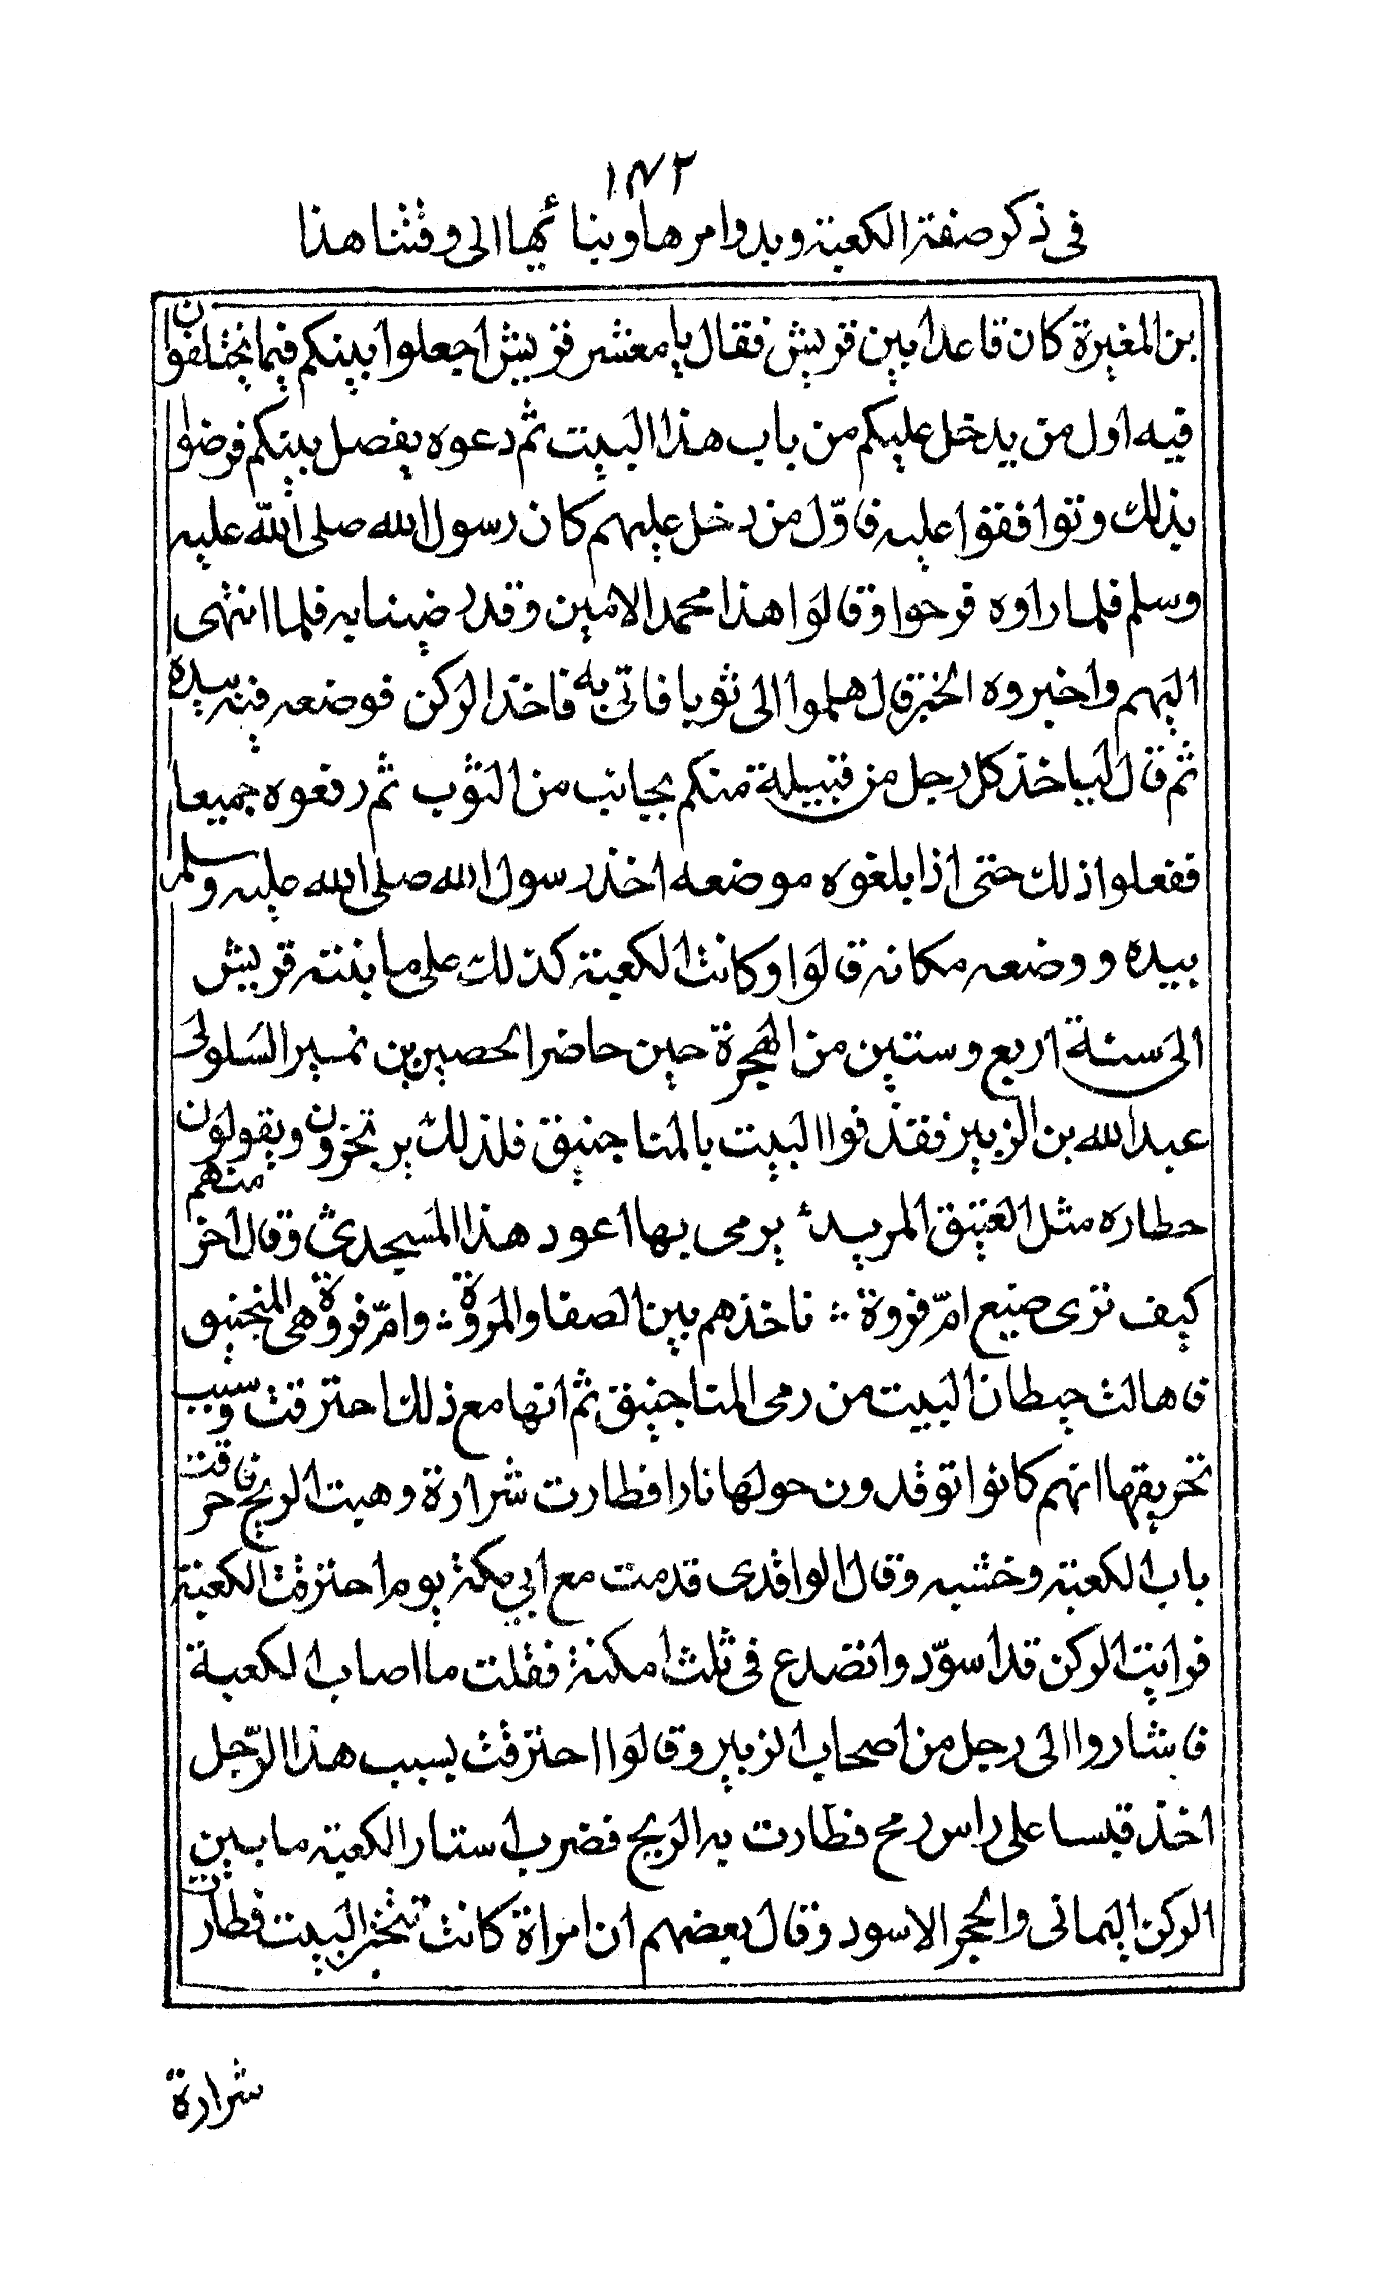 ١٧٢
في ذكر صفة الكعبة وبدوامرها وبنائها الى وقتنا هذا
بن المغيرة كان قاعدا بين قريش فقال يا معشر قريش اجعلوا بينكم فيما تختلفون
فيه اول من يدخل عليكم من باب هذا البيت ثم دعوه يفصل بينكم فرضوا
بذلك وتوافقوا عليه فاوّل من دخل عليهم كان رسول الله صلى الله عليه
وسلم فلما راوه فرحوا وقالوا هذا محمد الامين وقد رضينا به فلما انتهى
اليهم واخبروه الخبر قال هلموا الى ثوبا فاتى به فاخذ الركن فوضعه فيه بيده
ثم قال ليأخذ كل رجل من قبيلة منكم بجانب من الثوب ثم رفعوه جميعا
ففعلوا ذلك حتى اذا بلغوه موضعه اخذ رسول الله صلى الله عليه وسلم
بيده ووضعه مكانه قالوا وكانت الكعبة كذلك على ما بنته قريش
الى سنة اربع وستين من الهجرة حين حاضر الحصين بن نمير السلولى
عبد الله بن الزبير فقذفوا البيت بالمناجنيق فلذلك يرتجزون ويقولون منهم
حطاره مثل العتيق المريد يرمى بها اعود هذا المسجدى وقال اخر
كيف ترى صنيع امّ فروة ؞ ناخذهم بين الصفا والمروة ؞ وامّ فروة هى المنجنيق
فاهالت حيطان البيت من رمى المناجنيق ثم انها مع ذلك احترقت وسبب
تحريقها انهم كانوا توقدون حولها نارا فطارت شرارة وهبت الريح فاحرقت
باب الكعبة وخشبه وقال الواقدى قدمت مع ابي مكة يوم احترقت الكعبة
فرايت الركن قد اسوّد وانصدع فى ثلث امكنة فقلت ما اصاب الكعبة
فاشاروا الى رجل من اصحاب الزبير وقالوا احترقت بسبب هذا الرّجل
اخذ قبسا على راس رمح فطارت به الريح فضرب استار الكعبة ما بين
الركن اليمانى والحجر الاسود وقال بعضهم ان امراة كانت تتجمر البيت فطارت
شرارة